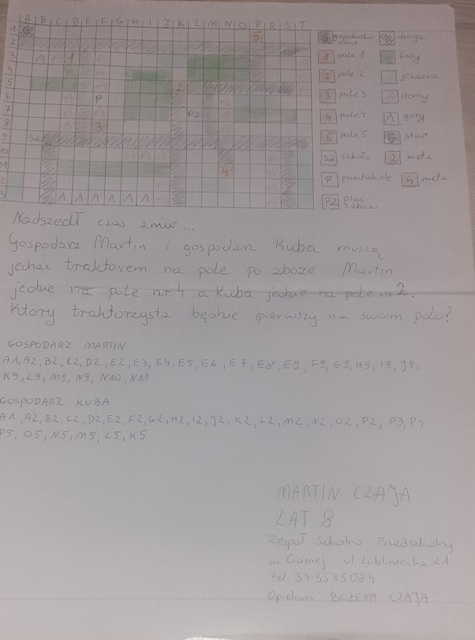 A B C D E F G H I J K L M N O P R S T
1
2
3
4
5
6
7
8
9
10
11
1
5
2
P
PZ
3
SZ
4
gospodarstwo rolne
droga
1 pole 1
lasy
2 pole 2
jeziora
3 pole 3
domy
4 pole 4
góry
5 pole 5
start
SZ szkoła
2 meta
P przedszkole
4 meta
PZ plac zabaw
Nadszedł czas żniw...
Gospodarz Martin i gospodarz Kuba muszą
jechać traktorem na pole po zboże. Martin
jedzie na pole nr 4 a Kuba jedzie na pole nr 2.
Który traktorzysta będzie pierwszy na swoim polu?
GOSPODARZ MARTIN
A1, A2, B2, C2, D2, E2, E3, E4, E5, E6, E7, E8, E9, F9, G9, H9, I9, J9,
K9, L9, M9, N9, N10, N11
GOSPODARZ KUBA
A1, A2, B2, C2, D2, E2, F2, G2, H2, I2, J2, K2, L2, M2, N2, O2, P2, P3, P4
P5, O5, N5, M5, L5, K5
MARTIN CZAJA
LAT 8
Zespół Szkolno-Przedszkolny
w Ciasnej ul. Lubliniecka 21
tel. 343535084
Opiekun BOŻENA CZAJA